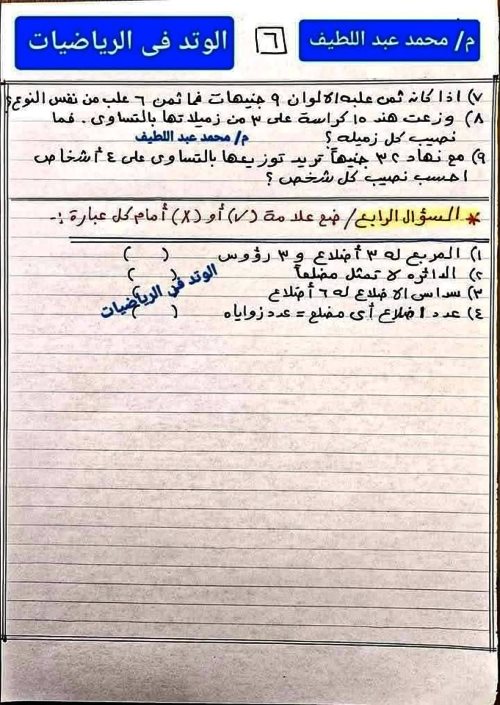 م/ محمد عبد اللطيف
٦
الوتد فى الرياضيات
٧) اذا كانه ثمن علبه الالوان ٩ جنيهات فما ثمن ٦ علب من نفس النوع؟
٨) وزعت هند ١٥ كراسة على ٣ من زميلاتها بالتساوى. فما
نصيب كل زميله ؟
م/ محمد عبد اللطيف
٩) مع نهاد ٣٢ جنيهاً تريد توزيعها بالتساوى على ٤ أشخاص
احسب نصيب كل شخص ؟
* السؤال الرابع / ضع علامة (√) أو (X) أمام كل عبارة :-
١) المربع له ٣ أضلاع و ٣ رؤوس ( )
٢) الدائره لا تمثل مضلعاً ( )
٣) سداسى الاضلاع له ٦ أضلاع ( )
٤) عدد اضلاع أى مضلع = عدد زواياه ( )
الوتد فى الرياضيات